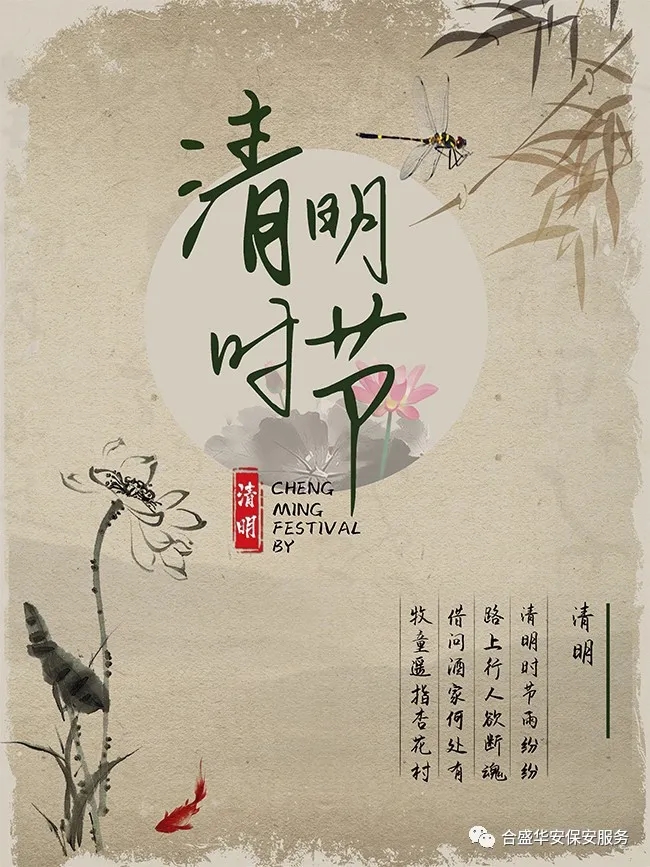 清明
时节
清明
CHENG
MING
FESTIVAL
BY
清明
清明时节雨纷纷
路上行人欲断魂
借问酒家何处有
牧童遥指杏花村
合盛华安保安服务